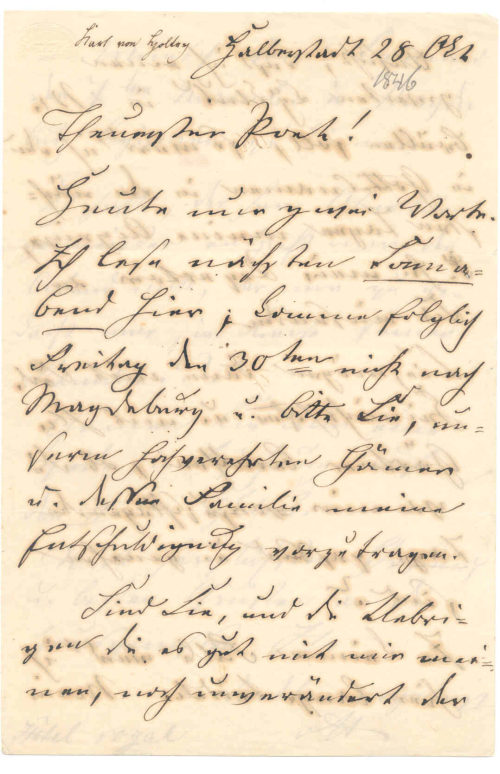 Karl von Holtey
Halberstadt 28 Okt
1846
Theuerster Poet!
Heute nur zwei Worte.
Ich lese nächsten Sonna=
bend hier, komme folglich
Freitag den 30ten nicht nach
Magdeburg u. bitte Sie, un=
serm hochverehrten
u. dessen Familie meine
Entschuldigung vorzutragen.
Sind Sie, und die Uebri=
gen die es gut mit mir mei=
nen, noch unverändert der
Hôtel royal